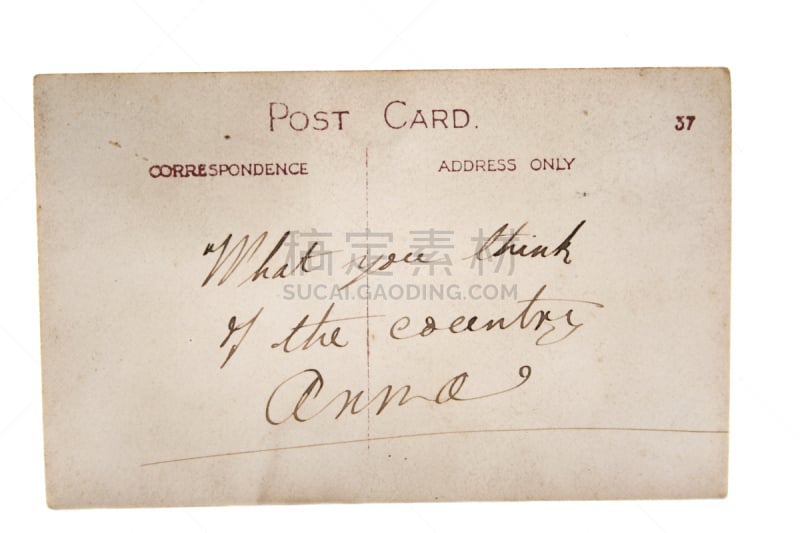 POST CARD.
37
CORRESPONDENCE
ADDRESS ONLY
"What you think
of the country
Anna
搞定素材
SUCAI.GAODING.COM